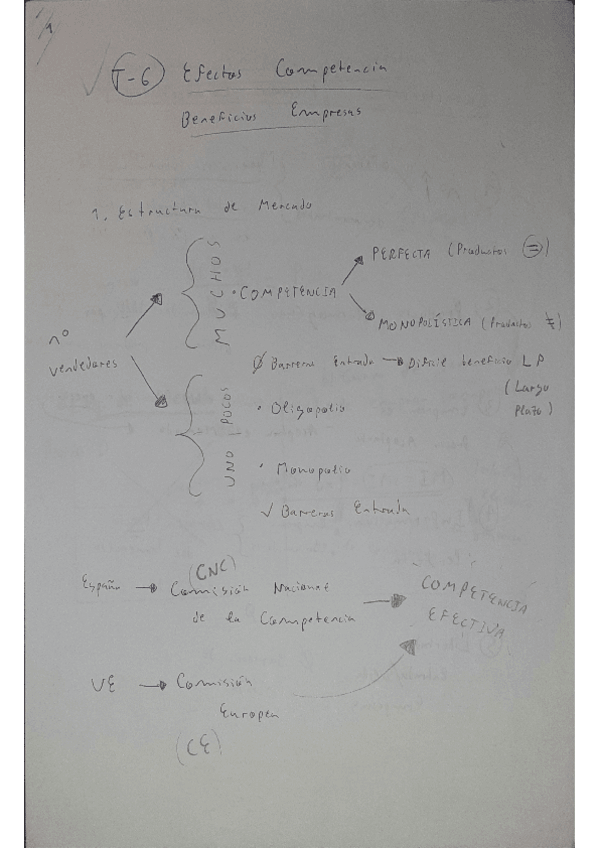 1
T-6 Efectos Competencia
Beneficios Empresas
1. Estructura de Mercado
nº
vendedores
MUCHOS
• COMPETENCIA
PERFECTA (Productos =)
MONOPOLÍSTICA (Productos ≠)
Ø Barreras Entrada → Dificil beneficio LP
(Largo
Plazo)
UNO / POCOS
• Oligopolio
• Monopolio
√ Barreras Entrada
España → Comisión Nacional
(CNC)
de la Competencia
UE → Comisión
Europea
(CE)
COMPETENCIA
EFECTIVA